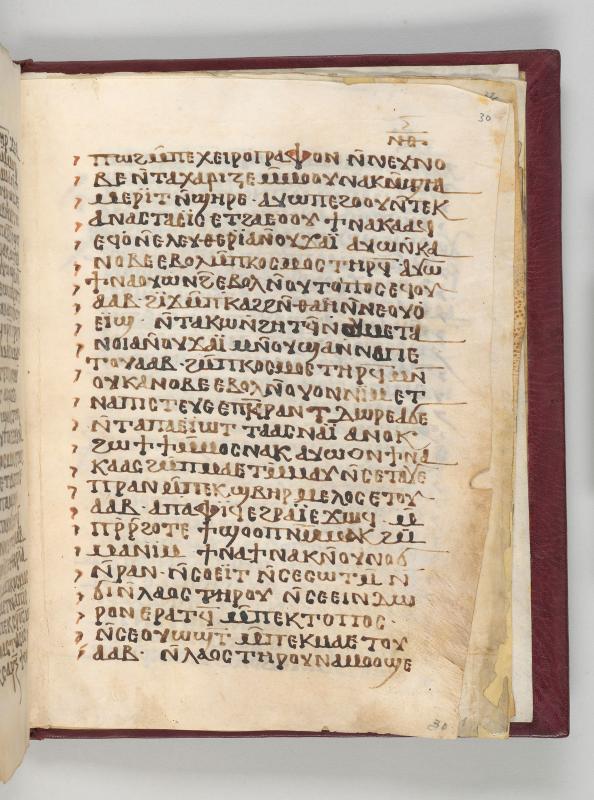 30
ⲛⲑ
ⲡⲱϩ ⲙ̅ⲡⲉⲭⲉⲓⲣⲟⲅⲣⲁⲫⲟⲛ ⲛ̅ⲛⲉⲩⲛⲟ
ⲃⲉ ⲛ̅ⲧⲁⲭⲁⲣⲓⲍⲉ ⲙ̅ⲙⲟⲟⲩ ⲛⲁⲕ
ⲙⲙⲉⲣⲓⲧ ⲛ̅ϣⲏⲣⲉ · ⲁⲩⲱ ⲡⲉϩⲟⲟⲩ ⲛ̅ⲧⲉⲕ
ⲁⲛⲁⲥⲧⲁⲥⲓⲥ ⲉⲧⲧⲁⲉⲟⲟⲩ ϯⲛⲁⲕⲁⲁϥ
ⲉϥⲟ ⲛ̅ⲉⲗⲉⲩⲑⲉⲣⲓⲁ ⲛ̅ⲟⲩϫⲁⲓ̈ ⲁⲩⲱ ⲛ̅ⲕⲁ
ⲛⲟⲃⲉ ⲉⲃⲟⲗ ⲙ̅ⲡⲕⲟⲥⲙⲟⲥ ⲧⲏⲣϥ ⲁⲩⲱ
ϯⲛⲁⲟⲩⲱⲛϩ ⲉⲃⲟⲗ ⲛ̅ⲟⲩⲧⲟⲡⲟⲥ ⲉϥⲟⲩ
ⲁⲁⲃ · ϩⲓϫⲙ̅ ⲡⲕⲁϩ ϩⲛ̅ ⲑⲁⲏ ⲛ̅ⲛⲉⲟⲩⲟ
ⲉⲓϣ · ⲛ̅ⲧⲁⲕⲱ ⲛ̅ϩⲏⲧϥ ⲛ̅ⲟⲩⲙⲉⲧⲁ
ⲛⲟⲓⲁ ⲛ̅ⲟⲩϫⲁⲓ̈ ⲙⲛ̅ ⲟⲩϣⲁⲛⲛⲁⲡⲉ
ⲧⲟⲩⲁⲁⲃ · ϩⲙ̅ ⲡⲕⲟⲥⲙⲟⲥ ⲧⲏⲣϥ ⲙⲛ̅
ⲟⲩⲕⲁⲛⲟⲃⲉ ⲉⲃⲟⲗ ⲛ̅ⲟⲩⲟⲛ ⲛⲓⲙ ⲉⲧ
ⲛⲁⲡⲓⲥⲧⲉⲩⲉ ⲉⲡⲉⲕⲣⲁⲛ ⲧⲇⲱⲣⲉⲁ ⲇⲉ
ⲛ̅ⲧⲁⲡⲁⲉⲓⲱⲧ ⲧⲁⲁⲥ ⲛⲁⲓ̈ ⲁⲛⲟⲕ
ϩⲱ ϯϯ ⲙ̅ⲙⲟⲥ ⲛⲁⲕ ⲁⲩⲱ ⲟⲛ ϯⲛⲁ
ⲕⲁⲁⲥ ϩⲙ̅ ⲡⲙⲁ ⲉⲧⲙ̅ⲙⲁⲩ ⲛ̅ⲥⲉⲧⲁⲩⲉ
ⲡⲣⲁⲛ ⲙ̅ⲡⲉⲕϣⲃⲏⲣ ⲙⲉⲗⲟⲥ ⲉⲧⲟⲩ
ⲁⲁⲃ · ⲁⲡⲁ ⲫⲓϥ ⲉϩⲣⲁⲓ̈ ⲉϫⲱϥ · ⲙ̅
ⲡⲣ̅ⲣϩⲟⲧⲉ ϯϣⲟⲟⲡ ⲛⲙ̅ⲙⲁⲕ ϩⲙ̅
ⲙⲁ ⲛⲓⲙ ϯⲛⲁϯ ⲛⲁⲕ ⲛ̅ⲟⲩⲛⲟϭ
ⲛ̅ⲣⲁⲛ · ⲛ̅ⲥⲟⲉⲓⲧ ⲛ̅ⲥⲉⲥⲱⲧⲙ ⲛ̅
ϭⲓ ⲛ̅ⲗⲁⲟⲥ ⲧⲏⲣⲟⲩ ⲛ̅ⲥⲉⲉⲓⲛⲉ ⲇⲱ
ⲣⲟⲛ ⲉⲣⲁⲧϥ̅ ⲙ̅ⲡⲉⲕⲧⲟⲡⲟⲥ ·
ⲛ̅ⲥⲉⲟⲩⲱϣⲧ ⲙ̅ⲡⲉⲕⲙⲁ ⲉⲧⲟⲩ
ⲁⲁⲃ · ⲛ̅ⲗⲁⲟⲥ ⲧⲏⲣⲟⲩ ⲛⲁⲙⲟⲟϣⲉ
30